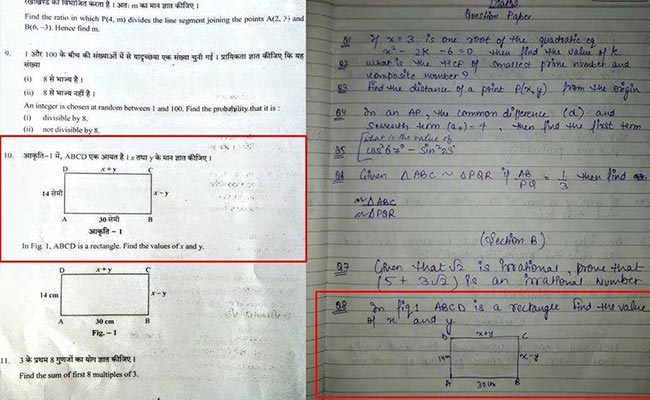 रेखाखण्ड को विभाजित करता है । अतः m का मान ज्ञात कीजिए ।
Find the ratio in which P(4, m) divides the line segment joining the points A(2, 3) and
B(6, –3). Hence find m.
9. 1 और 100 के बीच की संख्याओं में से यादृच्छया एक संख्या चुनी गई । प्रायिकता ज्ञात कीजिए कि यह
संख्या
(i) 8 से भाज्य है ।
(ii) 8 से भाज्य नहीं है ।
An integer is chosen at random between 1 and 100. Find the probability that it is :
(i) divisible by 8.
(ii) not divisible by 8.
10. आकृति-1 में, ABCD एक आयत है । x तथा y के मान ज्ञात कीजिए ।
D x + y C
14 सेमी x – y
A 30 सेमी B
आकृति – 1
In Fig. 1, ABCD is a rectangle. Find the values of x and y.
D x + y C
14 cm x – y
A 30 cm B
Fig. – 1
11. 3 के प्रथम 8 गुणजों का योग ज्ञात कीजिए ।
Find the sum of first 8 multiples of 3.
Maths
Question Paper
Q1 If x = 3 is one root of the quadratic eq
x² – 2k – 6 = 0 then find the value of k
Q2 What is the HCF of smallest prime number and
composite number?
Q3 Find the distance of a point P(x, y) from the origin
Q4 In an AP, the common difference (d) and
seventh term (a₇) = 4, then find the first term
What is the value of
Q5 cos²67° – sin²23°
Q6 Given △ABC ~ △PQR if AB/PQ = 1/3 then find
△ABC
△PQR
(Section B)
Q7 Given that √2 is irrational, prove that
(5 + 3√2) is an irrational Number
Q8 In fig 1 ABCD is a rectangle find the value
of x and y
D x+y C
14 x–y
A 30cm B